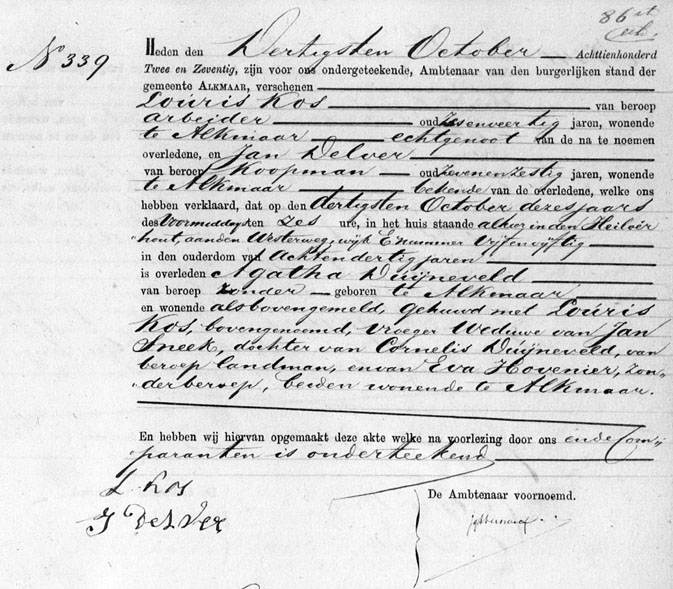 86
N° 339
Heden den Dertigsten October Achttienhonderd
Twee en Zeventig, zijn voor ons ondergeteekende, Ambtenaar van den burgerlijken stand der
gemeente ALKMAAR, verschenen
Louris Kos van beroep
arbeider oud zesenveertig jaren, wonende
te Alkmaar echtgenoot van de na te noemen
overledene, en Jan Delver
van beroep Koopman oud zevenenzestig jaren, wonende
te Alkmaar bekende van de overledene, welke ons
hebben verklaard, dat op den dertigsten October dezes jaars
des Voormiddags ten zes ure, in het huis staande alhier in den Heiloër
hout, aan den Westerweg, wijk E nummer Vijfenvijftig
in den ouderdom van Achtendertig jaren
is overleden Agatha Duijneveld
van beroep zonder geboren te Alkmaar
en wonende als bovengemeld, gehuwd met Louris
Kos, bovengenoemd, vroeger Weduwe van Jan
Sneek, dochter van Cornelis Duijneveld, van
beroep landman, en van Eva Hovenier, zon„
„der beroep, beiden wonende te Alkmaar.
En hebben wij hiervan opgemaakt deze akte welke na voorlezing door ons en de Com„
paranten is onderteekend
L Kos
J Delver
De Ambtenaar voornoemd.